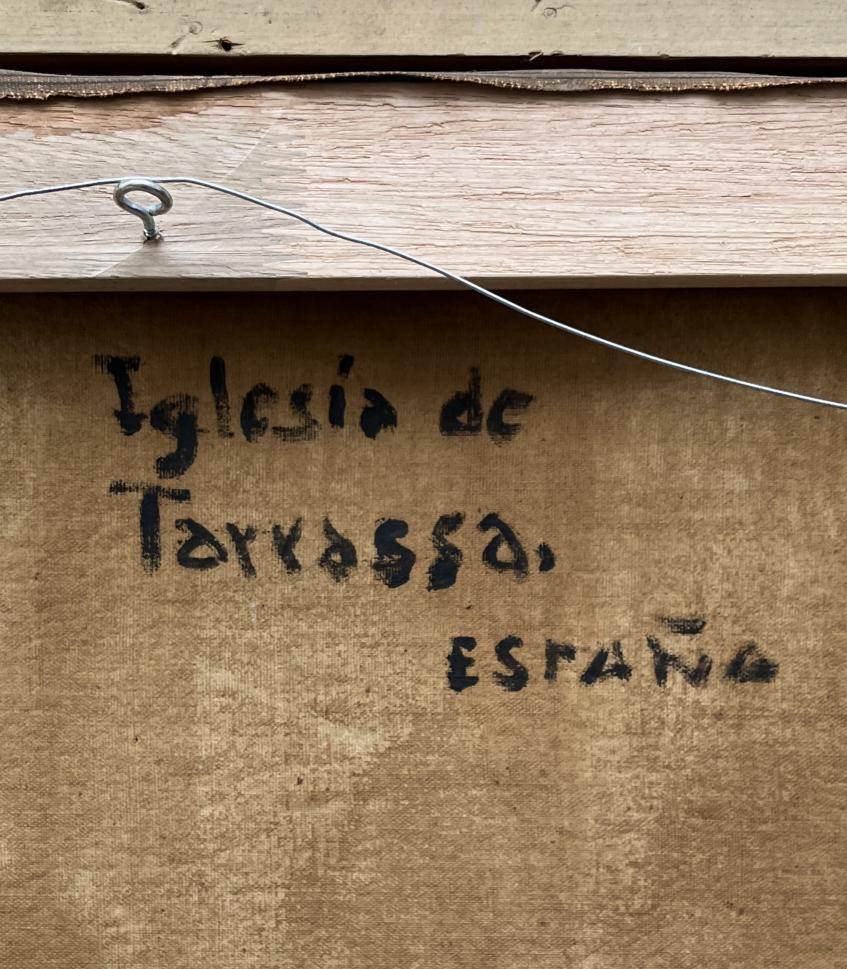 Iglesia de
Tarrassa.
ESPAÑA